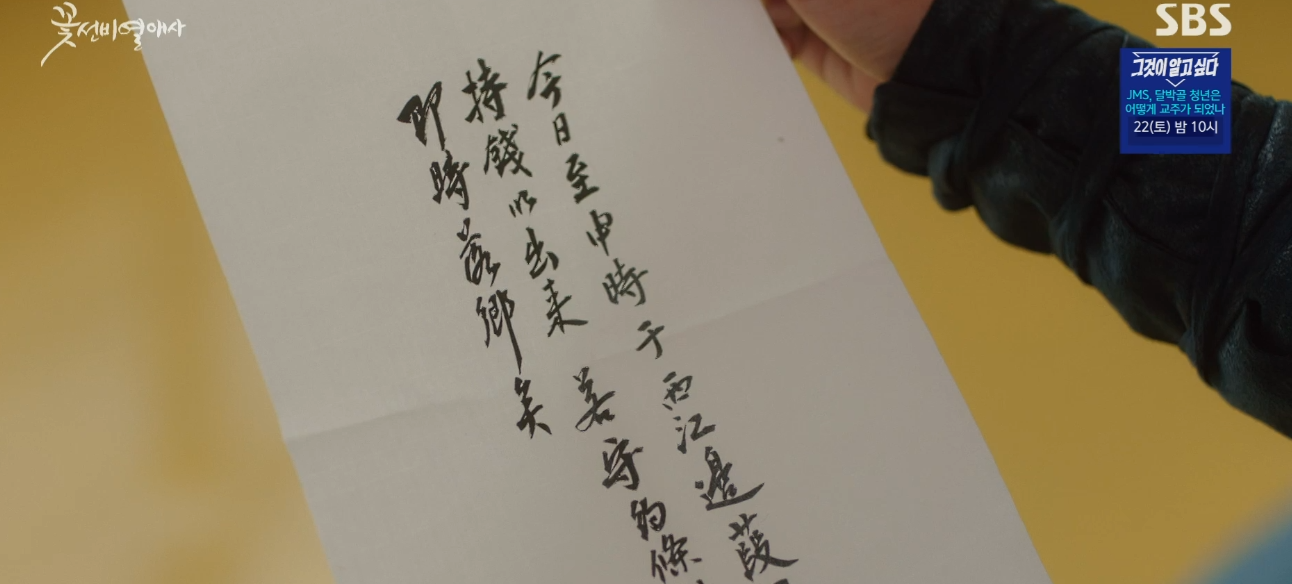 꽃선비열애사
SBS
그것이 알고싶다
JMS, 달박골 청년은
어떻게 교주가 되었나
22(토) 밤 10시
今日至申時于西江邊葭
持錢以出来 若守約條
即時落鄉矣